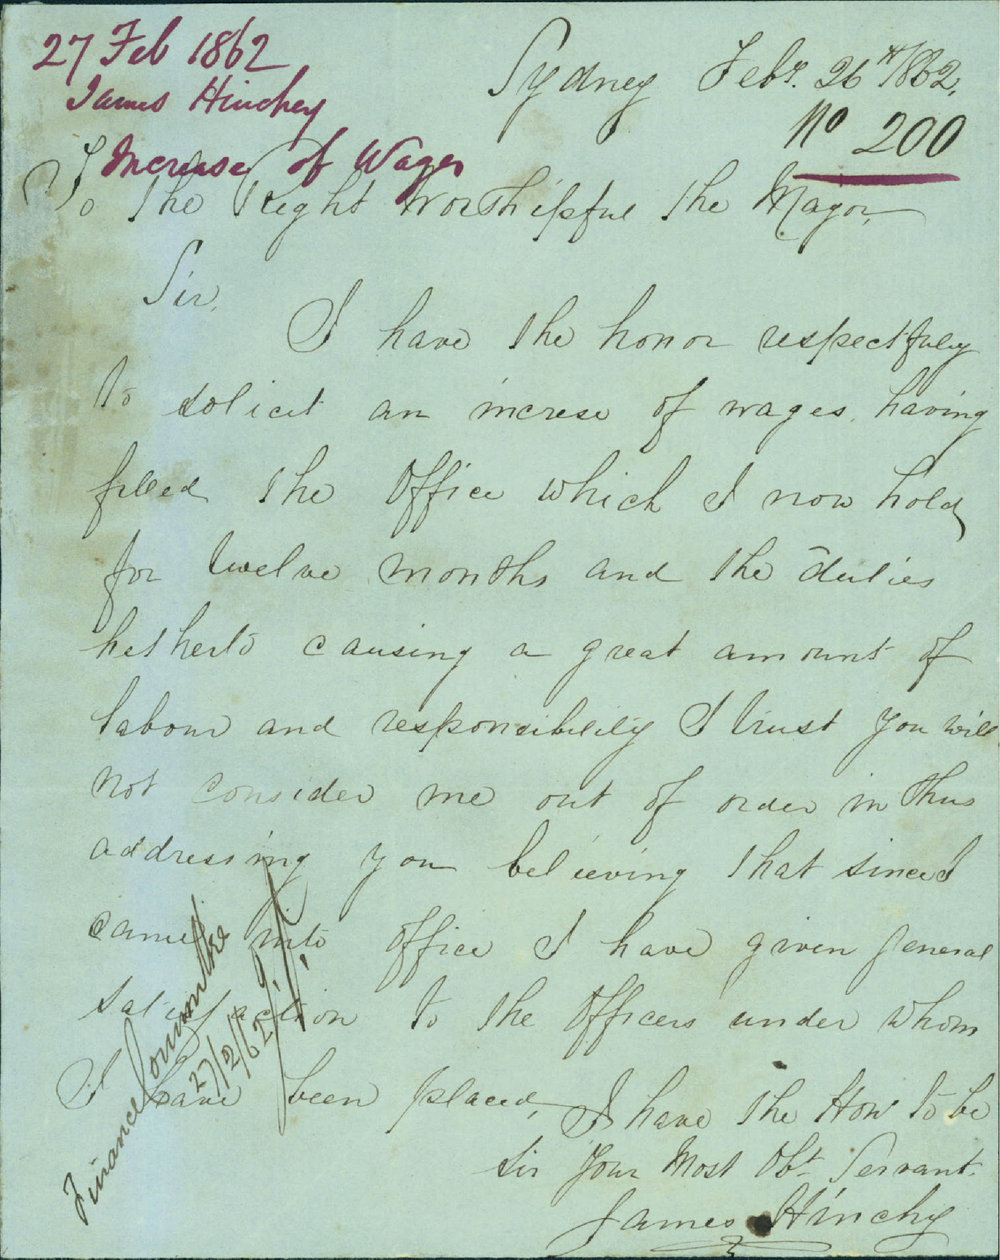 27 Feb 1862
James Hinchey
Increase of Wages
Sydney Feby. 26th 1862,
No 200
To The Right Worshipful The Mayor,
Sir,
I have the honor respectfuly
to solicit an increse of wages. having
filled the Office which I now hold,
for twelve months and the duties
hetherto causing a great amount of
labour and responsibility I trust you will
not consider me out of order in thus
addressing you believing that since I
came into office I have given general
satisfaction to the Officers under whom
I have been placed,
I have the Honr to be
Sir Your Most Obt Servant.
James Hinchy
Finance Committee
27/2/62